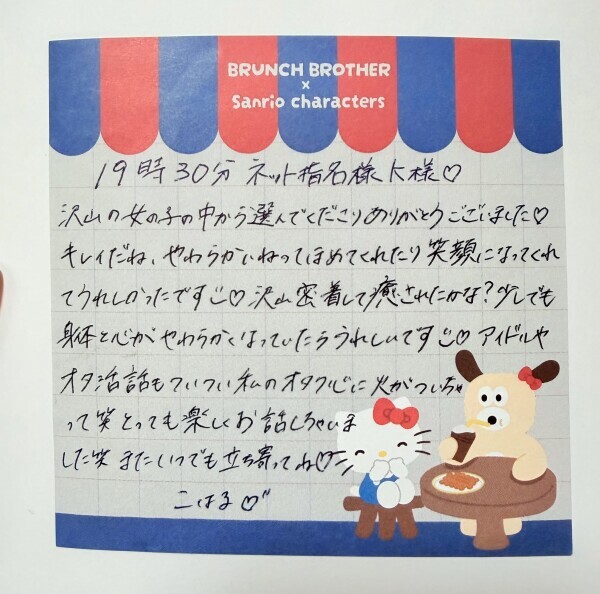 BRUNCH BROTHER
×
Sanrio characters
19時30分 ネット指名様 K様♡
沢山の女の子の中から選んでくださりありがとうございました♡
キレイだね、やわらかいねってほめてくれたり笑顔になってくれ
てうれしかったです♡ 沢山密着して癒されたかな?少しでも
身体と心がやわらかくなっていたらうれしいです♡ アイドルや
オタ活話もついつい私のオタク心に火がついちゃ
って笑 とっても楽しくお話しちゃいま
した笑 またいつでも立ち寄ってね♡
こはる♡